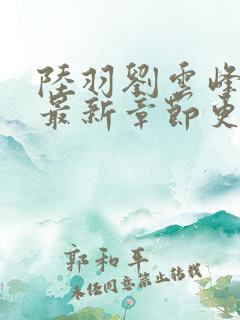 陸羽劉雲峰
最新章節更
郭和平
未經同意禁止轉載